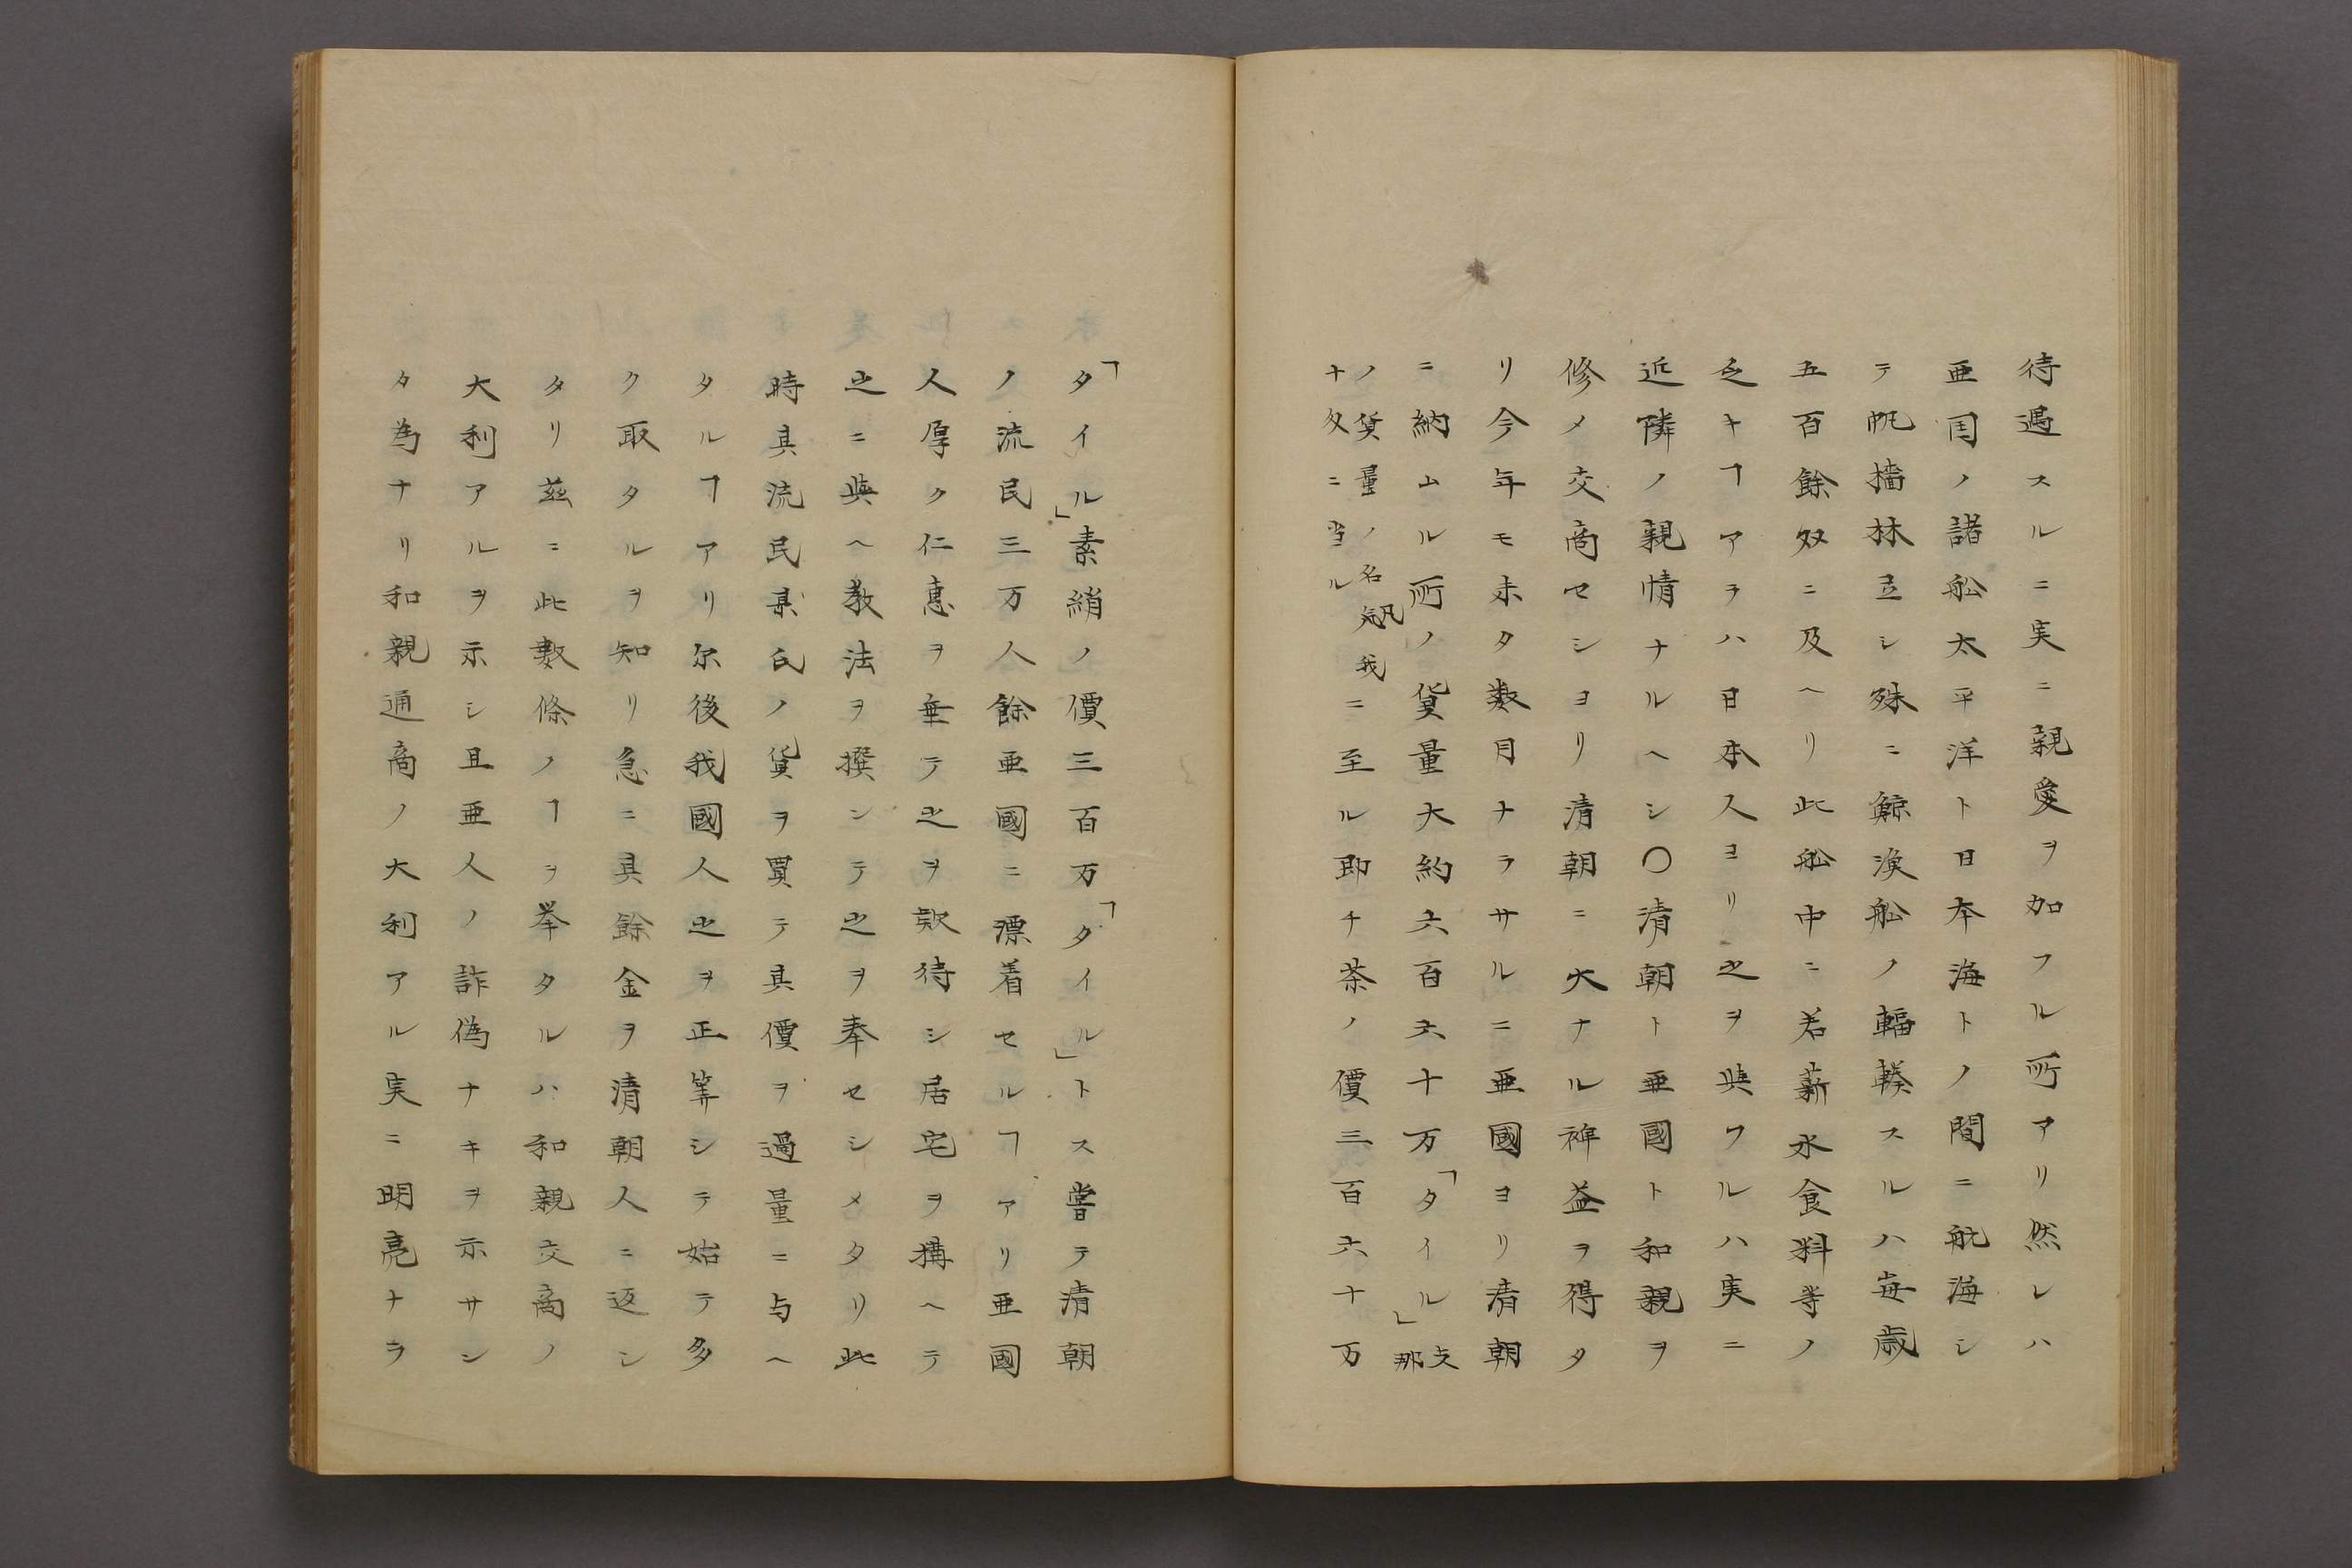 待遇スルニ実ニ親愛ヲ加フル所アリ然レハ
亜囯ノ諸舩太平洋ト日本海トノ間ニ航海シ
テ帆檣林立シ殊ニ鯨漁舩ノ輻輳スルハ毎歳
五百餘艘ニ及ヘリ此舩中ニ若薪水食料等ノ
乏キヿアラハ日本人ヨリ之ヲ與ワルハ実ニ
近隣ノ親情ナルヘシ〇清朝ト亜國ト和親ヲ
修メ交商セシヨリ清朝ニ大ナル裨益ヲ得タ
リ今年モ未タ数月ナラサルニ亜國ヨリ清朝
ニ納ムル所ノ貨量大約六百六十万「タイル」支那
ノ貨量ノ名凡我
十匁ニ当ルニ至ル即チ茶ノ價三百六十万
「タイル」素絹ノ價三百万「タイル」トス嘗テ清朝
ノ流民三万人餘亜國ニ漂着セルヿアリ亜國
人厚ク仁惠ヲ垂テ之ヲ欵待シ居宅ヲ搆ヘテ
之ニ與ヘ教法ヲ撰ンテ之ヲ奉セシメタリ此
時其流民某氏ノ貨ヲ買テ其價ヲ過量ニ与ヘ
タルヿアリ尓後我國人之ヲ正筭シテ始テ多
ク取タルヲ知リ急ニ其餘金ヲ清朝人ニ返シ
タリ茲ニ此數條ノヿヲ挙タルハ和親交商ノ
大利アルヲ示シ且亜人ノ詐偽ナキヲ示サン
タ為ナリ和親通商ノ大利アル実ニ明亮ナラ